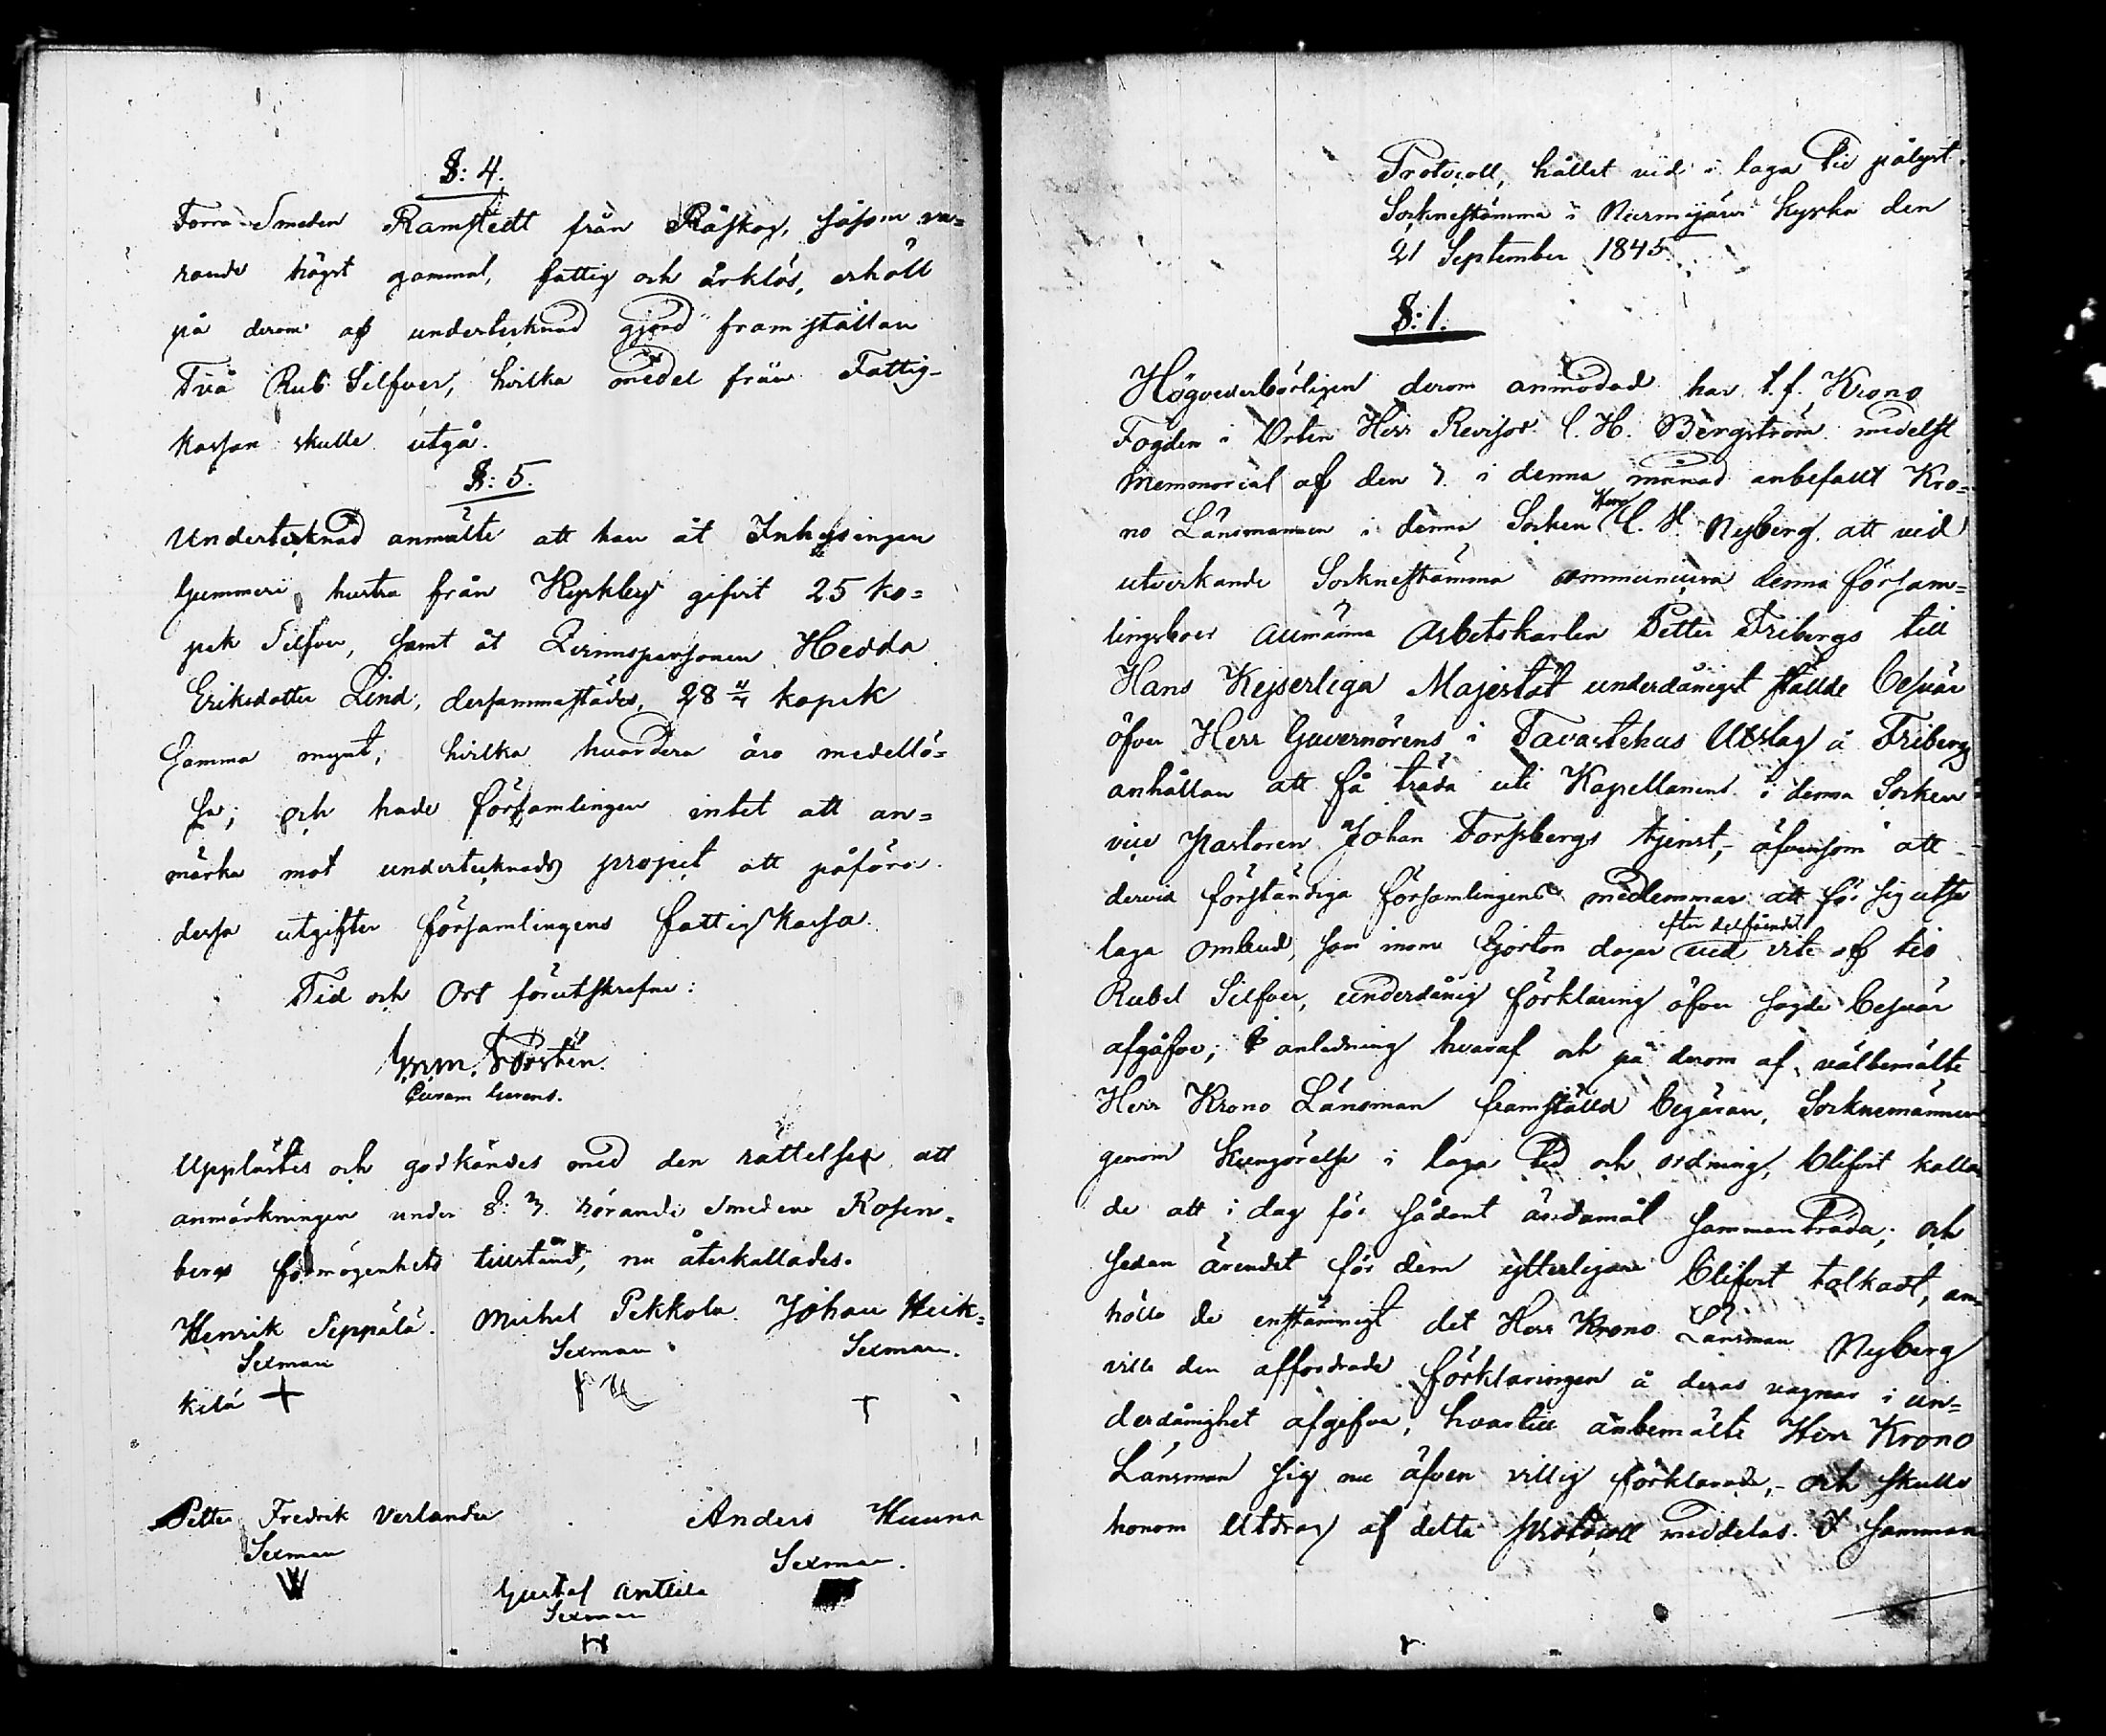 §: 4.
Forra Smeden Ramstedt från Råskog, såsom va=
rande högst gammal, fattig och årklös, erhöll
på derom af undertecknad gjord framställan
Två Rub. Silfver, hvilka medel från Fattig-
kassan skulle utgå.
§: 5.
Undertecknad anmälte att han åt Inhysingen
Gummeri hustru från Kyrkby gifvit 25 ko=
pek Silfver, samt åt Qvinnspersonen Hedda
Eriksdotter Lind, dersammastädes, 28 4/7 kopek
samma mynt; hvilka hvardera äro medellö=
sa; och hade församlingen intet att an=
märka mot undertecknads projet att påföra
dessa utgifter församlingens fattigkassa.
Tid och Ort förutskrefne:
Forstén.
Curam Gerens.
Upplästes och godkändes med den rättelsen att
anmärkningen under §: 3. rörande Smeden Rosen=
bergs förmögenhets tillstånd, nu återkallades.
Henrik Seppälä. Michel Pekkola. Johan Heik=
Sexman Sexman Sexman.
kilä +
Petter Fredrik Verlander Anders Kunna
Sexman Sexman.
Gustaf Anttila
Sexman
Protocoll, hållet vid i laga tid pålyst
Socknestämma i Nurmijärvi Kyrka den
21 September 1845.
§: 1.
Högvederbörligen derom anmodad har t.f. Krono
Fogden i Orten Herr Revisor C. H. Bergström medelst
Memorial af den 7. i denna månad anbefallt Kro=
no Länsmannen i denna Socken Herr C. H. Nyberg att vid
utverkande Socknestämma communicera denna försam=
lingsboer allmänna Arbetskarlen Petter Fribergs till
Hans Kejserliga Majestät underdånigst ställde besvär
öfver Herr Guvernörens i Tavastehus Utslag å Fribergs
anhållan att få träda uti Kapellanens i denna Socken
vice Pastoren Johan Forssbergs tjenst,- äfvensom att
dervid förständiga församlingens medlemmar att för sig utse
laga Ombud, som inom fjorton dagar efter delfåendet vid vite af tio
Rubel Silfver, underdånig förklaring öfver sagde besvär
afgåfve; i anledning hvaraf och på derom af välbemälte
Herr Krono Länsman framställd begäran, Socknemännen
genom Kungörelse i laga tid och ordning, blifvit kalla
de att i dag för sådant ändamål sammanträda; och
sedan ärendet för dem ytterligare blifvit tolkadt, an=
höllo de enstämmigt det Herr Krono Länsman Nyberg
ville den affordrade förklaringen å deras vagnar i un=
derdånighet afgifva, hvartill anbemälte Herr Krono
Länsman sig nu äfven villig förklarade,- och skulle
honom Utdrag af detta Protocoll meddelas. I samman